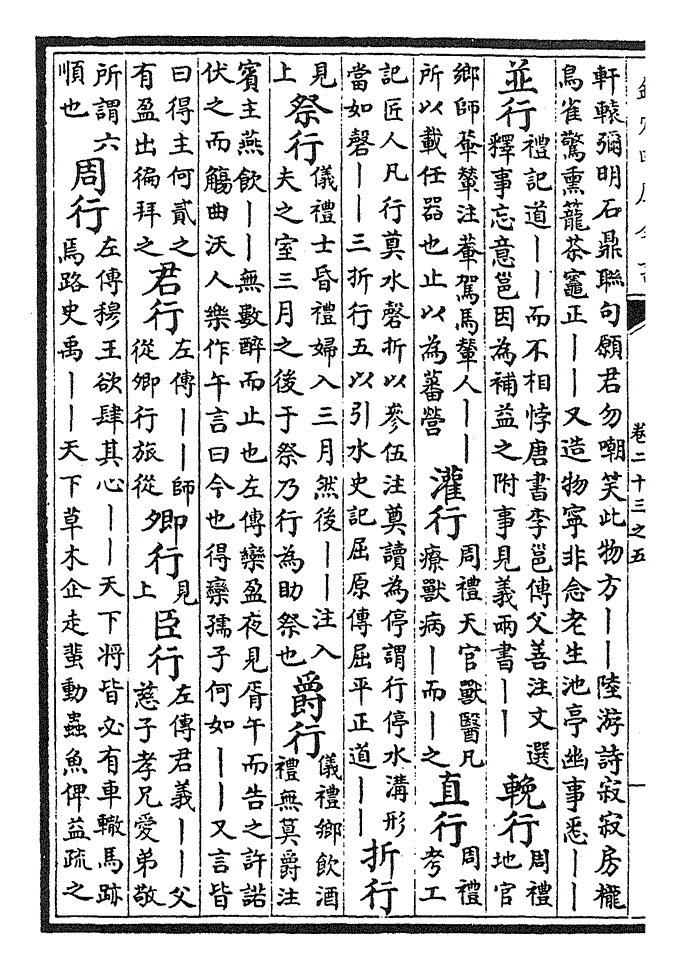 卷二十三之五
軒轅彌明石鼎聯句願君勿嘲笑此物方——陸游詩寂寂房櫳
鳥雀驚熏籠茶竈正——又造物寧非念老生池亭幽事悉——
並行
禮記道——而不相悖唐書李邕傳父善注文選
釋事忘意邕因為補益之附事見義兩書——
輓行
周禮
地官
鄉師輂輦注輂駕馬輦人——
所以載任器也止以為蕃營
灌行
周禮天官獸醫凡
療獸病—而—之
直行
周禮
考工
記匠人凡行奠水磬折以參伍注奠讀為停謂行停水溝形
當如磬——三折行五以引水史記屈原傳屈平正道——
折行
見
上
祭行
儀禮士昏禮婦入三月然後——注入
夫之室三月之後于祭乃行為助祭也
爵行
儀禮鄉飲酒
禮無莫爵注
賓主燕飲——無數醉而止也左傳欒盈夜見胥午而告之許諾
伏之而觴曲沃人樂作午言曰今也得欒孺子何如——又言皆
曰得主何貳之
有盈出徧拜之
君行
左傳——師
從卿行旅從
卿行
見
上
臣行
左傳君義——父
慈子孝兄愛弟敬
所謂六
順也
周行
左傳穆王欲肆其心——天下將皆必有車轍馬跡
焉路史禹——天下草木企走蜚動蟲魚俾益疏之